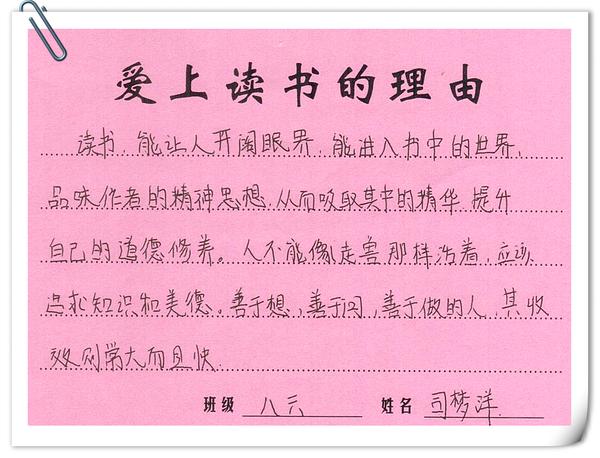 爱上读书的理由
读书,能让人开阔眼界,能进入书中的世界,
品味作者的精神思想,从而吸取其中的精华,提升
自己的道德修养。人不能像走兽那样活着,应该
追求知识和美德。善于想,善于问,善于做的人,其收
效则常大而且快.
班级 八六 姓名 司梦洋.